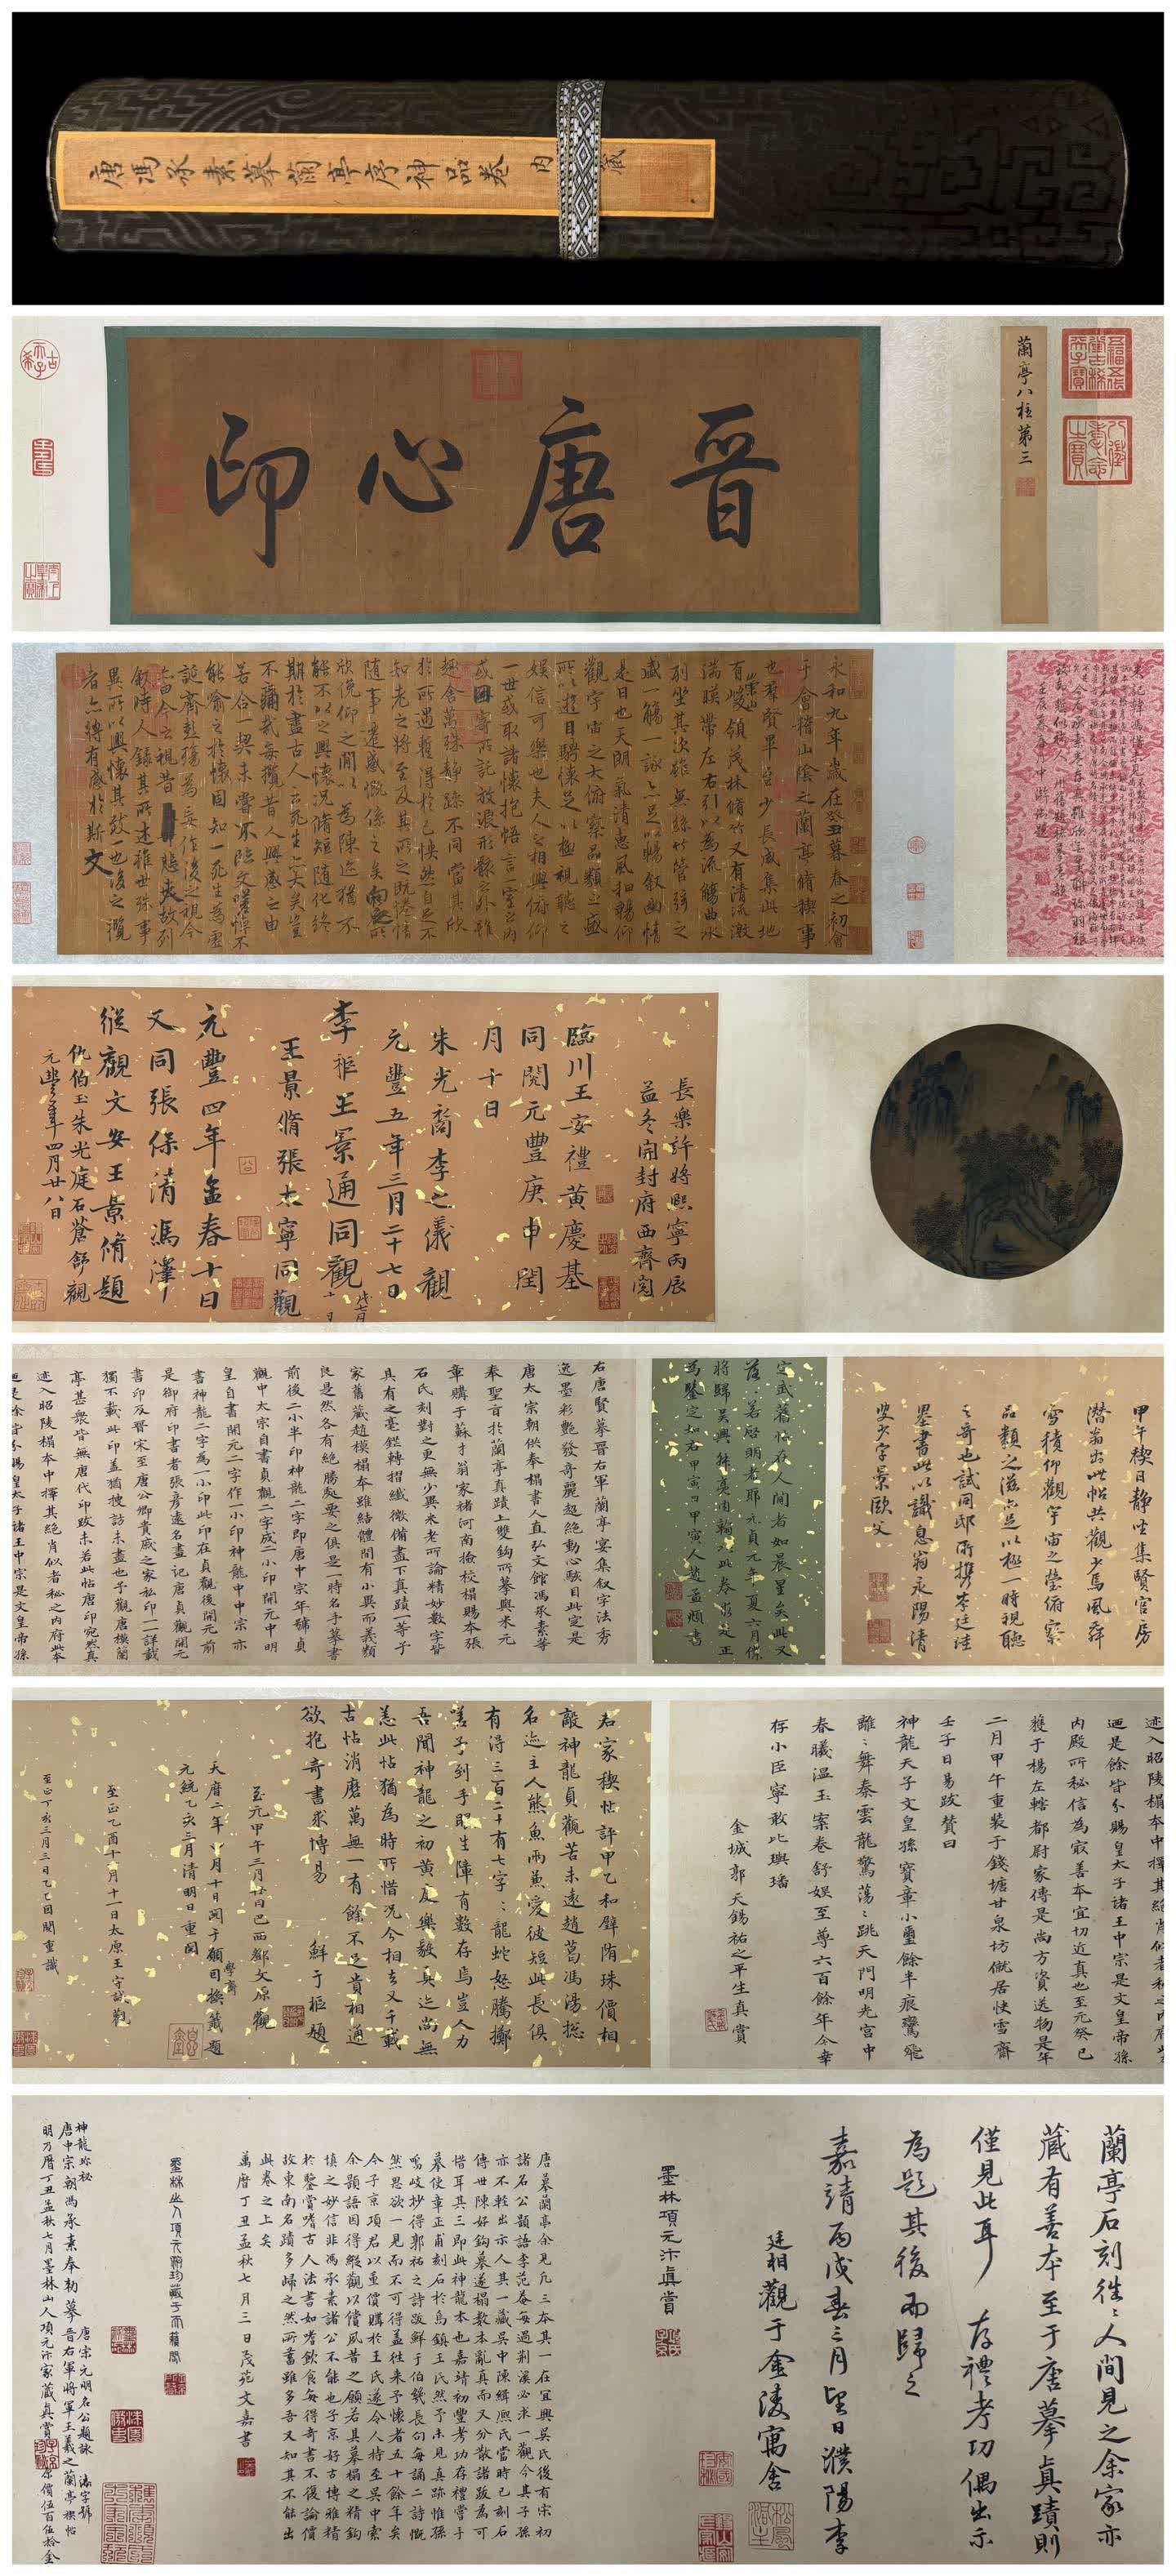 唐馮承素摹蘭亭序神品卷 內 藏
蘭亭八柱第三
晉唐心印
永和九年歲在癸丑暮春之初會
于會稽山陰之蘭亭脩稧事
也羣賢畢至少長咸集此地
有崇山峻領茂林脩竹又有清流激
湍暎帶左右引以為流觴曲水
列坐其次雖無絲竹管弦之
盛一觴一詠亦足以暢敘幽情
是日也天朗氣清惠風和暢仰
觀宇宙之大俯察品類之盛
所以遊目騁懷足以極視聽之
娛信可樂也夫人之相與俯仰
一世或取諸懷抱悟言一室之內
或因寄所託放浪形骸之外雖
趣舍萬殊靜躁不同當其欣
於所遇蹔得於己怏然自足不
知老之將至及其所之既惓情
隨事遷感慨係之矣向之所
欣俛仰之間以為陳迹猶不
能不以之興懷況脩短隨化終
期於盡古人云死生亦大矣豈
不痛哉每攬昔人興感之由
若合一契未嘗不臨文嗟悼不
能喻之於懷固知一死生為虛
誕齊彭殤為妄作後之視今
亦由今之視昔悲夫故列
敘時人錄其所述雖世殊事
異所以興懷其致一也後之攬
者亦將有感於斯文
長樂許將熙寧丙辰
孟冬開封府西齋閱
臨川王安禮黃慶基
同閱元豐庚申閏
月十日
朱光裔李之儀觀
元豐五年三月二十七日
李秬王景通同觀
王景脩張太寧同觀
元豐四年孟春十日
又同張保清馮澤
縱觀文安王景脩題
仇伯玉朱光庭石蒼舒觀
元豐年四月廿八日
甲午稧日靜坐集賢官房
潛翁出此帖共觀少焉風舜
雪積仰觀宇宙之瑩俯察
品類之滋亦足以極一時視聽
之奇也試同邸所攜岑廷珪
墨書此以識息翁永陽清
叟少字景歐父
定武舊帖在人間者如晨星矣此又
落落若啓明者耶元貞元年夏六月僕
將歸吳興
為鑒定如右甲寅日甲寅人趙孟頫書
右唐賢摹晉右軍蘭亭宴集敘字法秀
逸墨彩艷發奇麗超絕動心駭目此定是
唐太宗朝供奉榻書人直弘文館馮承素等
奉聖旨於蘭亭真蹟上雙鉤所摹與米元
章購于蘇才翁家褚河南檢校榻賜本張
石氏刻對之更無少異米老所論精妙數字皆
具有之毫鋩轉摺纖微備盡下真蹟一等子
家舊藏趙模榻本雖結體間有小異而義類
良是然各有絕勝處要之俱是一時名手摹書
前後二小半印神龍二字即唐中宗年號貞
觀中太宗自書貞觀二字成二小印開元中明
皇自書開元二字作一小印神龍中中宗亦
書神龍二字為一小印此印在貞觀後開元前
是御府印書者張彥遠名畫記唐貞觀開元
書印及晉宋至唐公卿貴戚之家私印一一詳載
獨不載此印蓋猶搜訪未盡也予觀唐模蘭
亭甚衆皆無唐代印跋未若此帖唐印宛然真
迹入昭陵榻本中擇其絕肖似者秘之內府此本
迺是餘皆分賜皇太子諸王中宗是文皇帝孫
迹入昭陵榻本中擇其絕肖似者秘之內府此
迺是餘皆分賜皇太子諸王中宗是文皇帝孫
內殿所秘信為最善本宜切近真也至元癸巳
獲于楊左轄都尉家傳是尚方資送物是年
二月甲午重裝于錢塘甘泉坊僦居快雪齋
壬子日易跋贊曰
神龍天子文皇孫寶章小璽餘半痕驚飛
離離舞秦雲龍驚蕩蕩跳天門明光宮中
春曦溫玉案卷舒娛至尊六百餘年今幸
存小臣寧敢比璵璠
金城郭天錫祐之平生真賞
君家稧帖評甲乙和璧隋珠價相
敵神龍貞觀苦未遠趙葛馮湯總
名迹主人熊魚兩兼愛彼短此長俱
有得三百二十有七字字龍蛇怒騰擲
嗟予到手眼生障有數存焉豈人力
吾聞神龍之初黃庭樂毅真迹尚無
恙此帖猶為時所惜況今相去又千載
古帖消磨萬無一有餘不足貴相通
欲抱奇書求博易 鮮于樞題
至元甲午三月廿日巴西鄧文原觀
元統乙亥三月清明日重閱
至正乙酉十月十一日太原王守誠觀
至正丁亥三月三日乙乙因閱重識
蘭亭石刻往往人間見之余家亦
藏有善本至于唐摹真蹟則
僅見此耳 存禮考功偶出示
為題其後而歸之
嘉靖丙戌春三月望日濮陽李
廷相觀于金陵寓舍
墨林項元汴真賞
唐摹蘭亭余見凡三本其一在宜興吳氏後有宋初
諸名公題語李范菴每過荊溪必求一觀今其子孫
亦不輕出示人其一藏吳中陳緝熙氏當時已刻石
傳世陳好鉤摹遂搨數本亂真而又分散諸跋為可
惜耳其三即此神龍本也嘉靖初豐考功存禮嘗手
摹使章正甫刻石於烏鎮王氏然予未見真跡惟孫
鳴岐抄得郭祐之詩跋鮮于伯幾長句每誦二詩慨
然思欲一見而不可得蓋往來予懷者五十餘年矣
今子京項君以重價購於王氏遂令人持至吳中索
余題語因得縱觀以償夙昔之願若其摹榻之精鉤
填之妙信非馮承素諸公不能也子京好古博雅精
於鑒賞嗜古人法書如嗜飲食每得奇書不復論價
故東南名蹟多歸之然所蓄雖多吾又知其不能出
此卷之上矣
萬曆丁丑孟秋七月三日茂苑文嘉書
神龍珍秘
唐中宗朝馮承素奉勒摹晉右軍將軍王羲之蘭亭稧帖
唐宋元明名公題詠
明萬曆丁丑孟秋七月墨林山人項元汴家藏真賞 原價伍百伍拾金